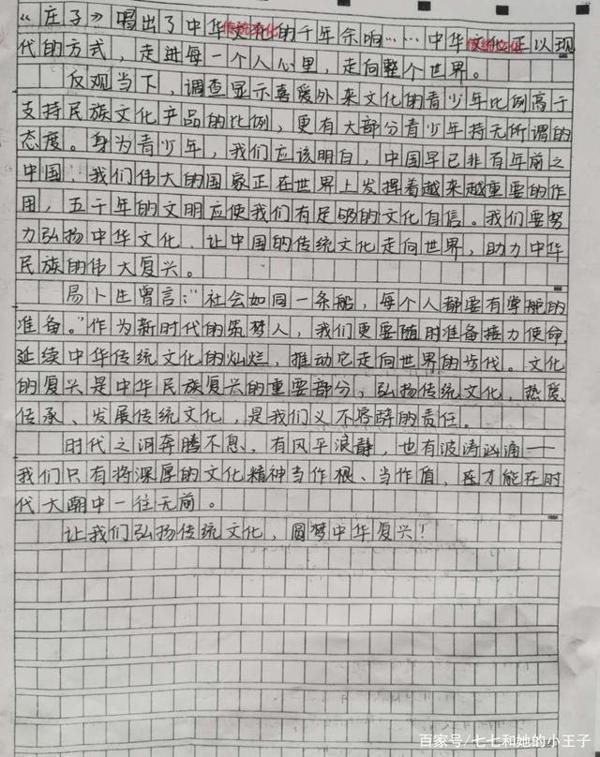 《庄子》唱出了中华文化的千年余响……中华文化正以现
传统文化
传统文化
代的方式，走进每一个人心里，走向整个世界。
反观当下，调查显示喜爱外来文化的青少年比例高于
支持民族文化产品的比例，更有大部分青少年持无所谓的
态度。身为青少年，我们应该明白，中国早已非百年前之
中国，我们伟大的国家正在世界上发挥着越来越重要的作
用，五千年的文明应使我们有足够的文化自信。我们要努
力弘扬中华文化，让中国的传统文化走向世界，助力中华
民族的伟大复兴。
易卜生曾言：“社会如同一条船，每个人都要有掌舵的
准备。”作为新时代的筑梦人，我们更要随时准备接力使命，
延续中华传统文化的灿烂，推动它走向世界的步伐。文化
的复兴是中华民族复兴的重要部分，弘扬传统文化，热爱、
传承、发展传统文化，是我们义不容辞的责任。
时代之河奔腾不息，有风平浪静，也有波涛汹涌——
我们只有将深厚的文化精神当作根、当作盾，才能在时
代大潮中一往无前。
让我们弘扬传统文化，圆梦中华复兴！
百家号/七七和她的小王子